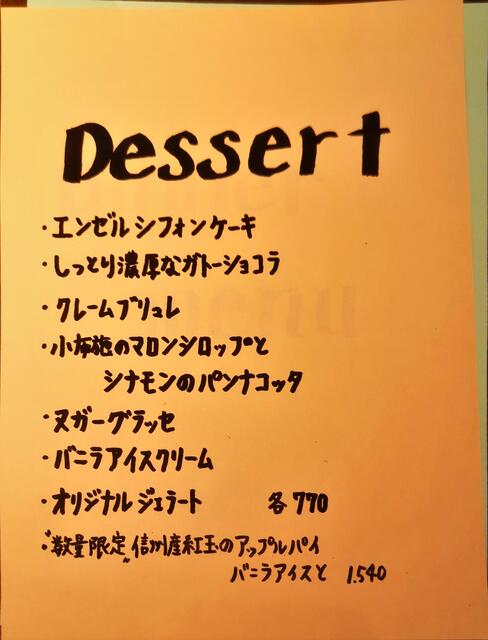 Dessert
・エンゼルシフォンケーキ
・しっとり濃厚なガトーショコラ
・クレームブリュレ
・小布施のマロンシロップと
シナモンのパンナコッタ
・ヌガーグラッセ
・バニラアイスクリーム
・オリジナルジェラート 各770
・"数量限定"信州産紅玉のアップルパイ
バニラアイスと 1.540